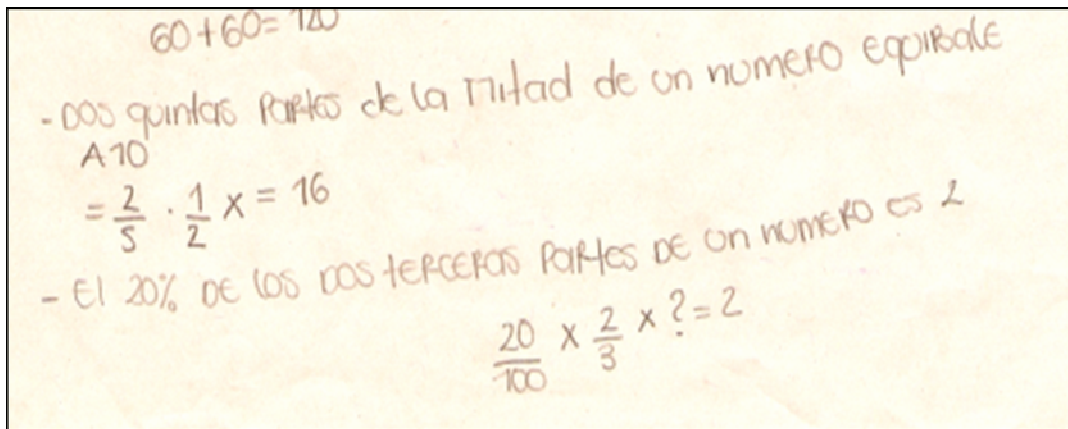 60+60=120
- DOS quintas PaRtes de la mitad de un numero equibale
A 10
= 2/5 · 1/2 x = 16
- El 20% DE los DOS teRCERas PaRtes DE un numeRO es 2
20/100 x 2/3 x ? = 2